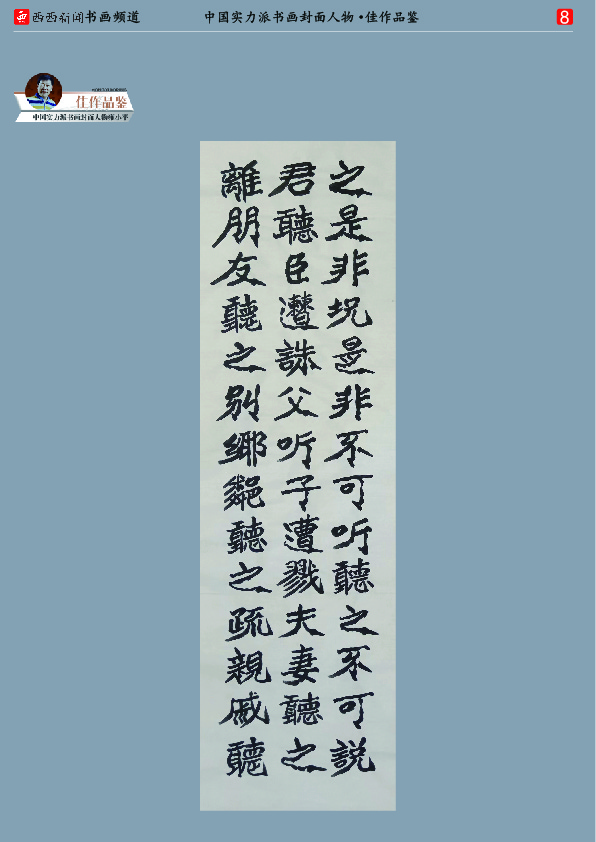 西西新闻书画频道
中国实力派书画封面人物·佳作品鉴
8
佳作品鉴
中国实力派书画封面人物 小平
之是非況是非不可听聽之不可説
君聽臣遭誅父听子遭戮夫妻聽之
離朋友聽之别鄉鄰聽之疏親戚聽